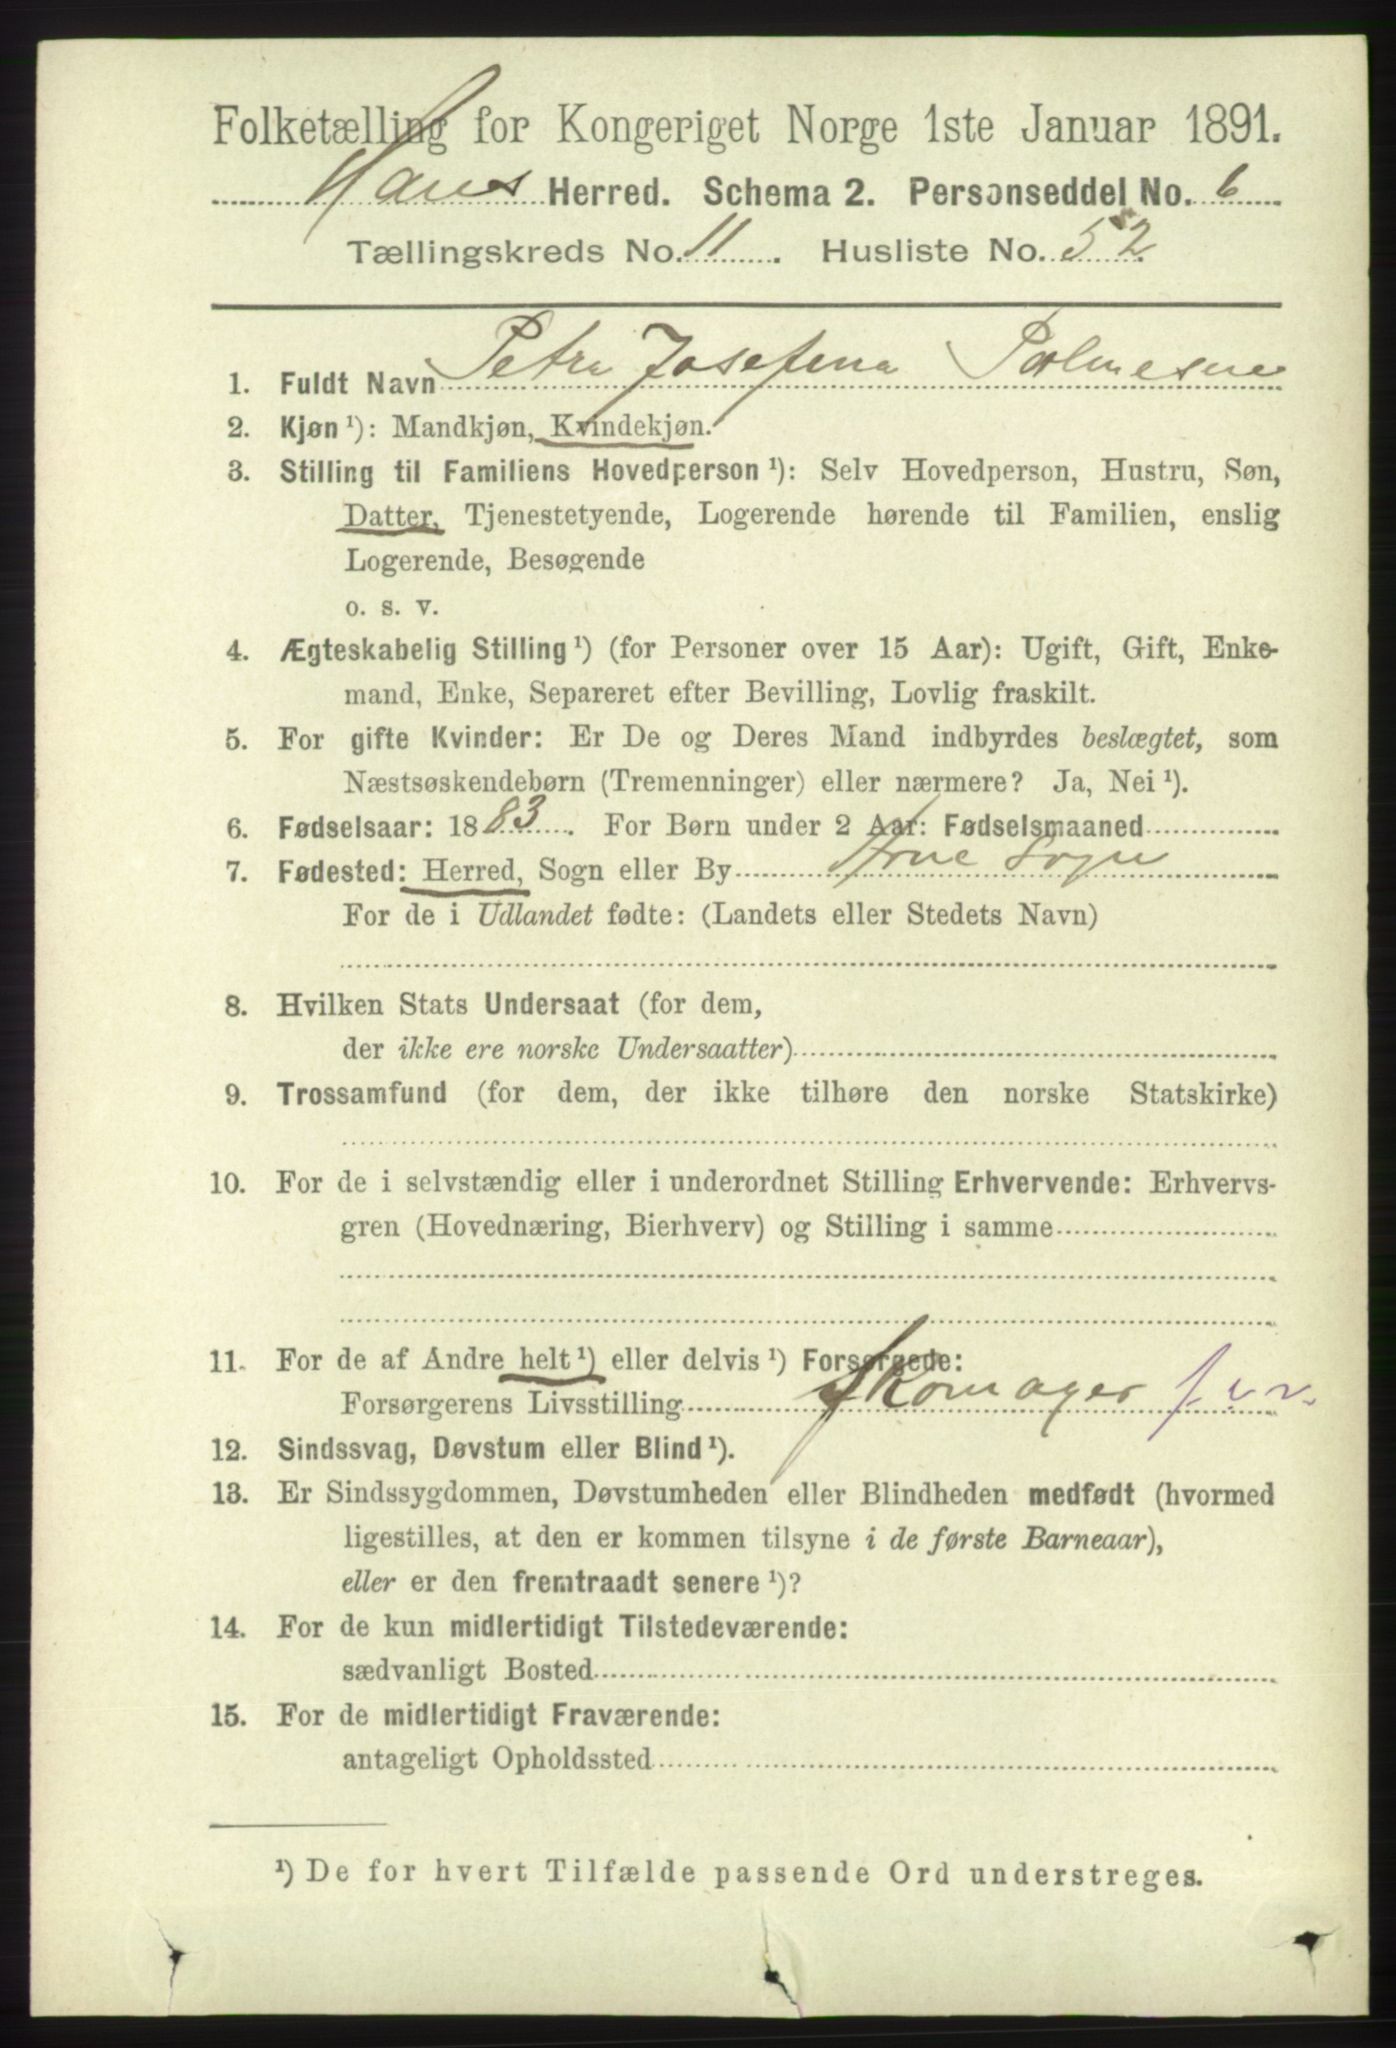 Folketælling for Kongeriget Norge 1ste Januar 1891.
Haus Herred. Schema 2. Personseddel No. 6
Tællingskreds No. 11. Husliste No. 52.
1. Fuldt Navn Petra Josefina
2. Kjøn ¹): Mandkjøn, Kvindekjøn.
3. Stilling til Familiens Hovedperson ¹): Selv Hovedperson, Hustru, Søn,
Datter, Tjenestetyende, Logerende hørende til Familien, enslig
Logerende, Besøgende
o. s. v.
4. Ægteskabelig Stilling ¹) (for Personer over 15 Aar): Ugift, Gift, Enke-
mand, Enke, Separeret efter Bevilling, Lovlig fraskilt.
5. For gifte Kvinder: Er De og Deres Mand indbyrdes beslægtet, som
Næstsøskendebørn (Tremenninger) eller nærmere? Ja, Nei ¹).
6. Fødselsaar: 1883. For Børn under 2 Aar: Fødselsmaaned
7. Fødested: Herred, Sogn eller By Arne Sogn
For de i Udlandet fødte: (Landets eller Stedets Navn)
8. Hvilken Stats Undersaat (for dem,
der ikke ere norske Undersaatter)
9. Trossamfund (for dem, der ikke tilhøre den norske Statskirke)
10. For de i selvstændig eller i underordnet Stilling Erhvervende: Erhvervs-
gren (Hovednæring, Bierhverv) og Stilling i samme
11. For de af Andre helt ¹) eller delvis ¹) Forsørgede:
Forsørgerens Livsstilling Skomager
12. Sindssvag, Døvstum eller Blind ¹).
13. Er Sindssygdommen, Døvstumheden eller Blindheden medfødt (hvormed
ligestilles, at den er kommen tilsyne i de første Barneaar),
eller er den fremtraadt senere ¹)?
14. For de kun midlertidigt Tilstedeværende:
sædvanligt Bosted
15. For de midlertidigt Fraværende:
antageligt Opholdssted
¹) De for hvert Tilfælde passende Ord understreges.